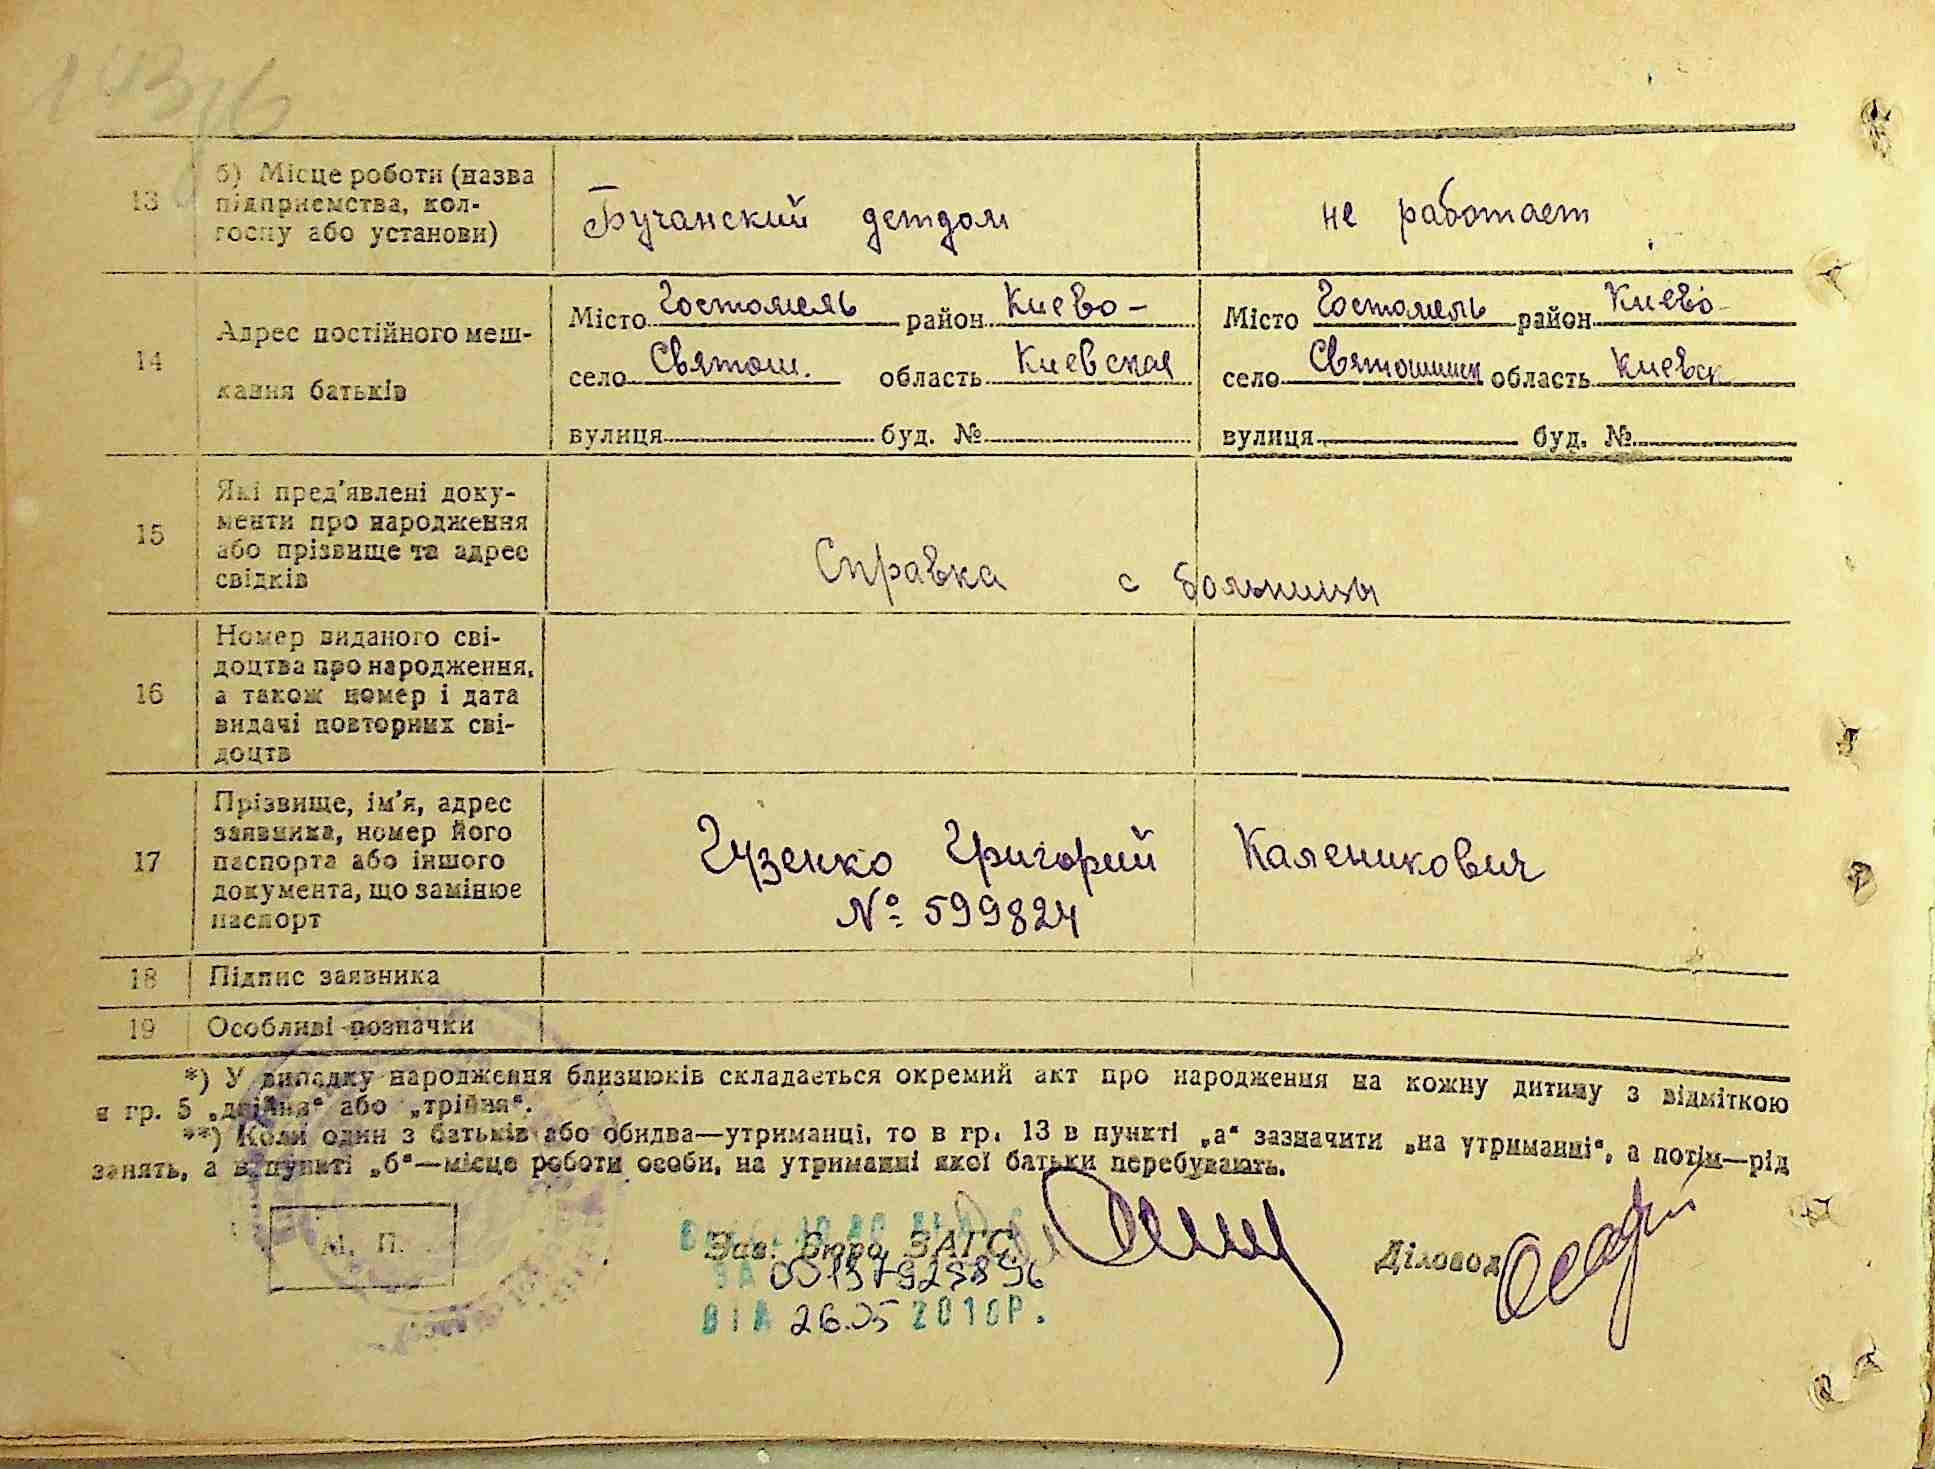 13 б) Місце роботи (назва підприємства, колгоспу або установи) Бучанский детдом не работает
14 Адрес постійного мешкання батьків
Місто Гостомель район Киево- Місто Гостомель район Киево-
село Святош. область Киевская село Святошинск область Киевск
вулиця буд. № вулиця буд. №
15 Які пред'явлені доку-
менти про народження
або прізвище та адрес
свідків
Справка с больницы
16 Номер виданого сві-
доцтва про народження,
а також номер і дата
видачі повторних сві-
доцтв
17 Прізвище, ім'я, адрес
заявника, номер його
паспорта або іншого
документа, що замінює
паспорт
Гузенко Григорий Каленикович
№ 599824
18 Підпис заявника
19 Особливі позначки
*) У випадку народження близнюків складається окремий акт про народження на кожну дитину з відміткою
в гр. 5 „двійня“ або „трійня“.
**) Коли один з батьків або обидва—утриманці, то в гр. 13 в пункті „а“ зазначити „на утриманні“, а потім—рід
занять, а в пункті „б“—місце роботи особи, на утриманні якої батьки перебувають.
М. П.
Зав. Бюро ЗАГС Діловод
ЗА 00137925896
ВІД 26.05 2010Р.